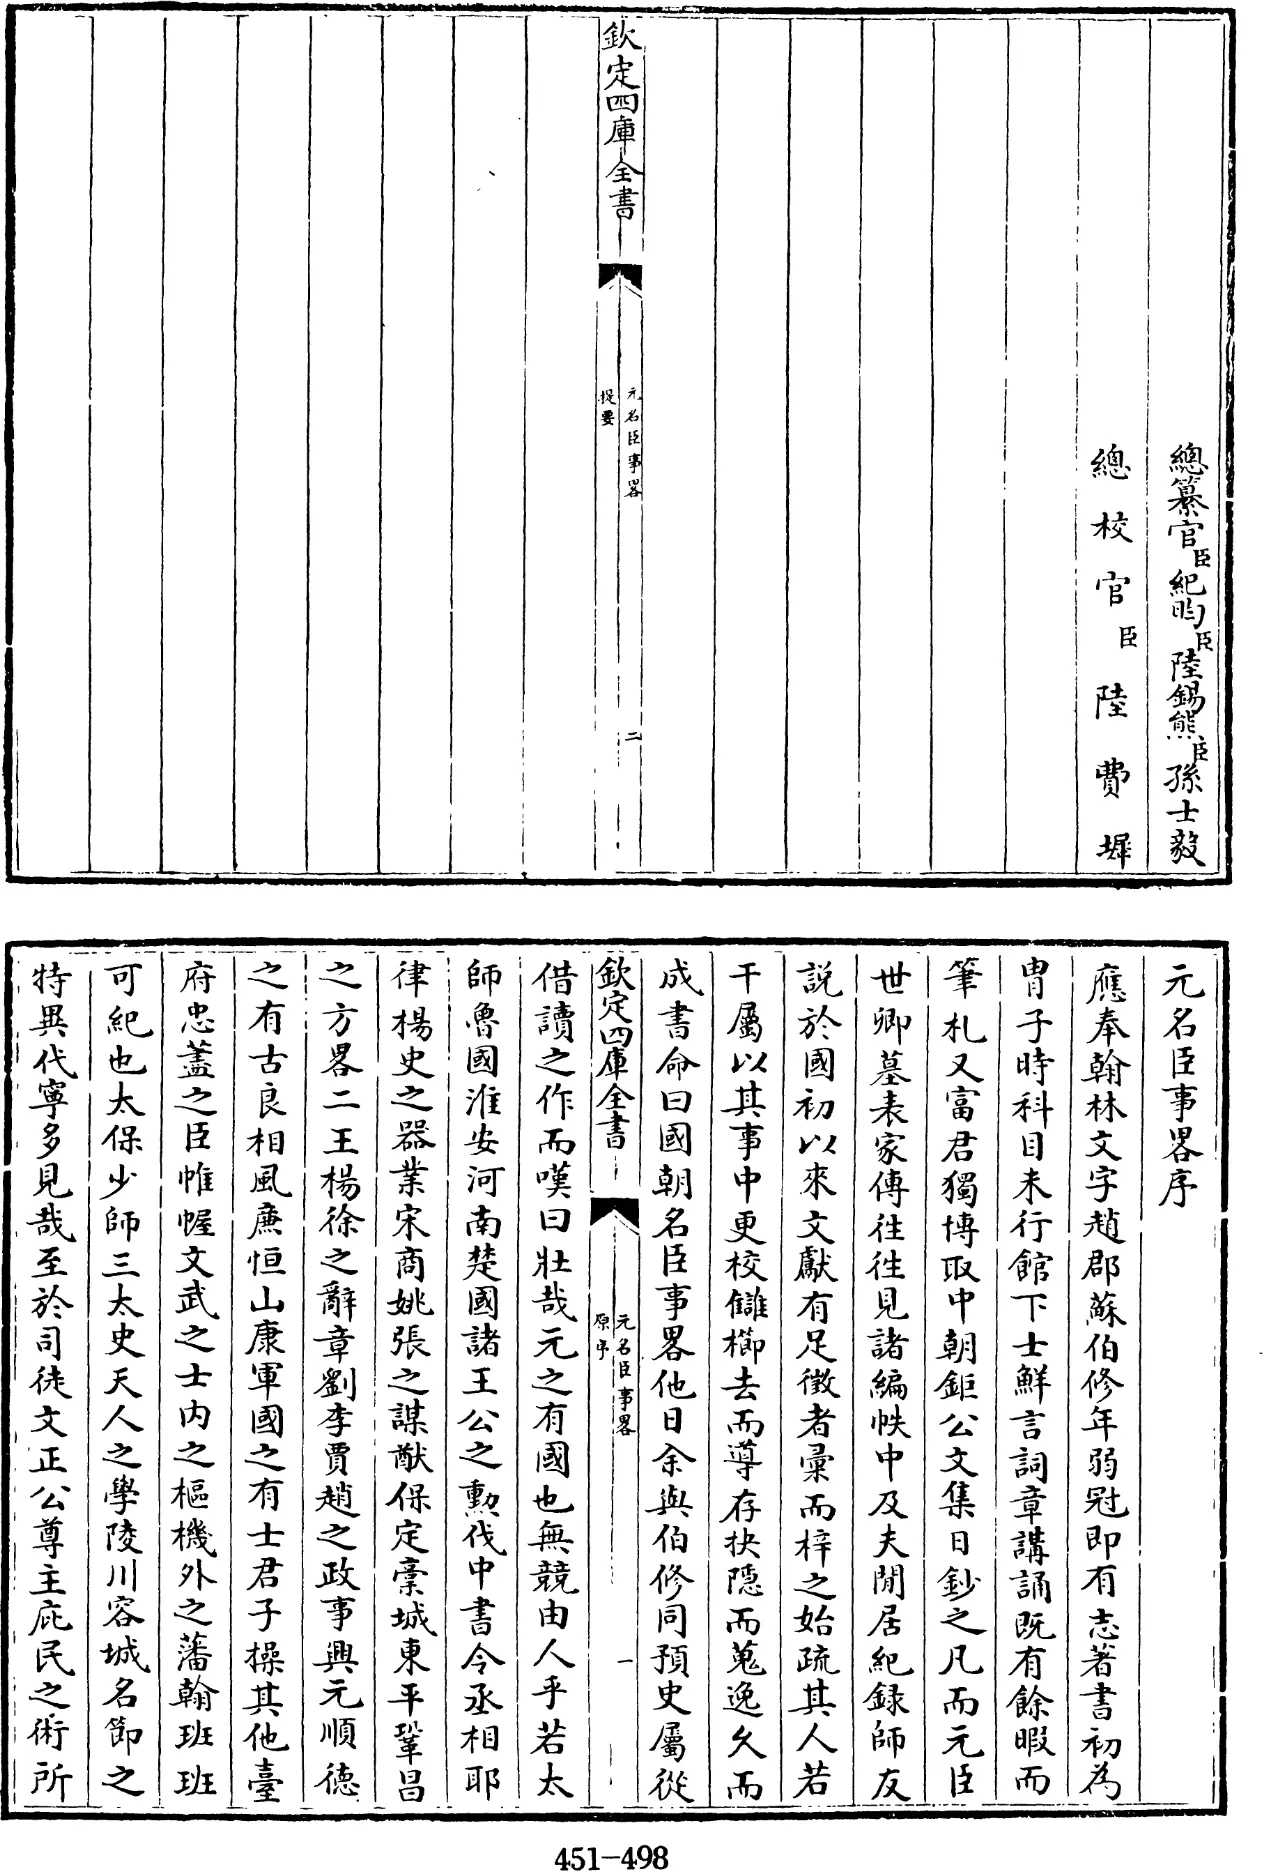 總纂官臣紀昀臣陸錫熊臣孫士毅
總校官臣陸費墀
欽定四庫全書
元名臣事畧
提要
二
元名臣事畧序
應奉翰林文字趙郡蘇伯修年弱冠即有志著書初為
胄子時科目未行館下士鮮言詞章講誦既有餘暇而
筆札又富君獨博取中朝鉅公文集日鈔之凡而元臣
世卿墓表家傳往往見諸編帙中及夫閒居紀録師友
說於國初以來文獻有足徵者彙而梓之始疏其人若
干屬以其事中更校讎櫛去而導存抉隱而蒐逸久而
成書命曰國朝名臣事畧他日余與伯修同預史屬從
欽定四庫全書
元名臣事畧
原序
一
借讀之作而嘆曰壯哉元之有國也無競由人乎若太
師魯國淮安河南楚國諸王公之勲伐中書令丞相耶
律楊史之器業宋商姚張之謀猷保定藁城東平鞏昌
之方畧二王楊徐之辭章劉李賈趙之政事興元順德
之有古良相風廉恒山康軍國之有士君子操其他臺
府忠藎之臣帷幄文武之士内之樞機外之藩翰班班
可紀也太保少師三太史天人之學陵川容城名節之
特異代寧多見哉至於司徒文正公尊主庇民之術所
451-498